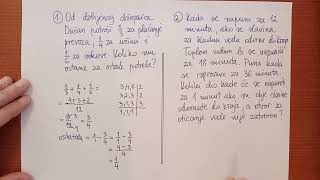 ① Od dobijenog džeparca,
Dušan potroši 1/3 za plaćanje
prevoza, 1/4 za užinu i
1/6 za sokove. Koliko mu
ostane za ostale potrebe?
1/3 + 1/4 + 1/6 =
= 4+3+2/12
= 9/12 = 3/4
ostatak = 1 - 3/4 = 1/1 - 3/4
= 4-3/4
= 1/4
3,4,6 | 2
3,2,3 | 2
3,1,3 | 3
1,1,1
② Kada se napuni za 12
minuta, ako se slavina
za hladnu vodu otvori do kraja.
Toplom vodom bi se napunila
za 18 minuta. Puna kada
se isprazni za 36 minuta.
Koliki dio kade će se napuniti
za 1 minut ako se obje slavine
odvrnute do kraja, a otvor za
oticanje vode nije zatvoren?